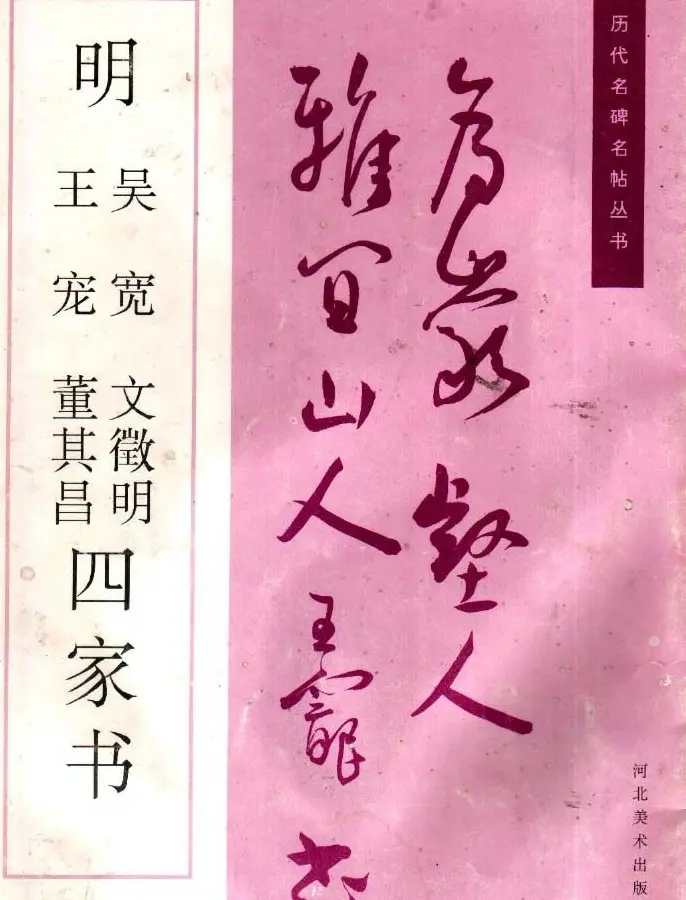 历代名碑名帖丛书
河北美术出版
為巖壑人
雅宜山人王寵書
明
吴宽 文徵明
王宠 董其昌
四家书